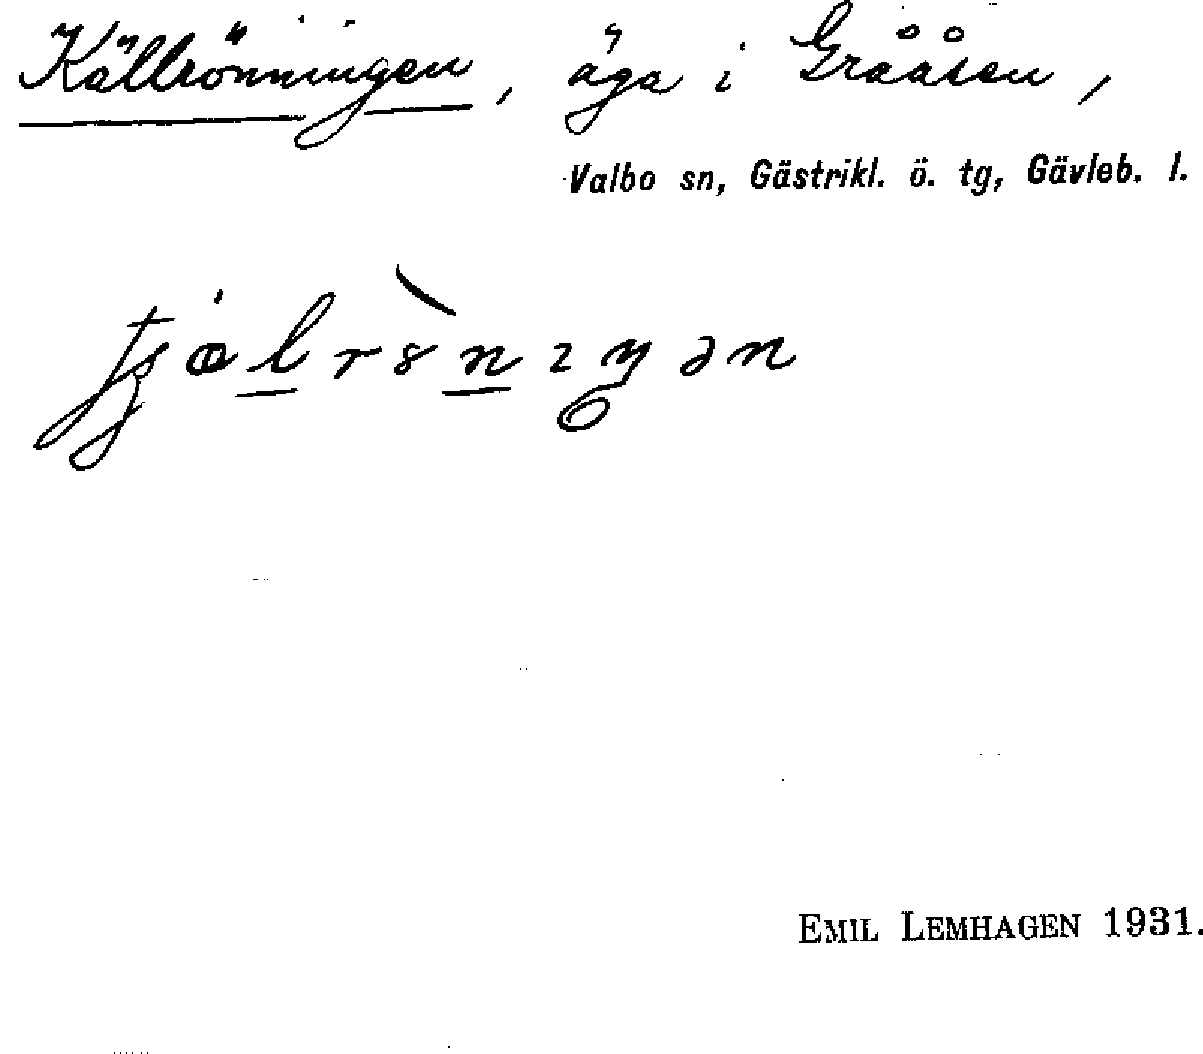 Källrönningen, äga i Grååsen,
Valbo sn, Gästrikl. ö. tg, Gävleb. l.
EMIL LEMHAGEN 1931.